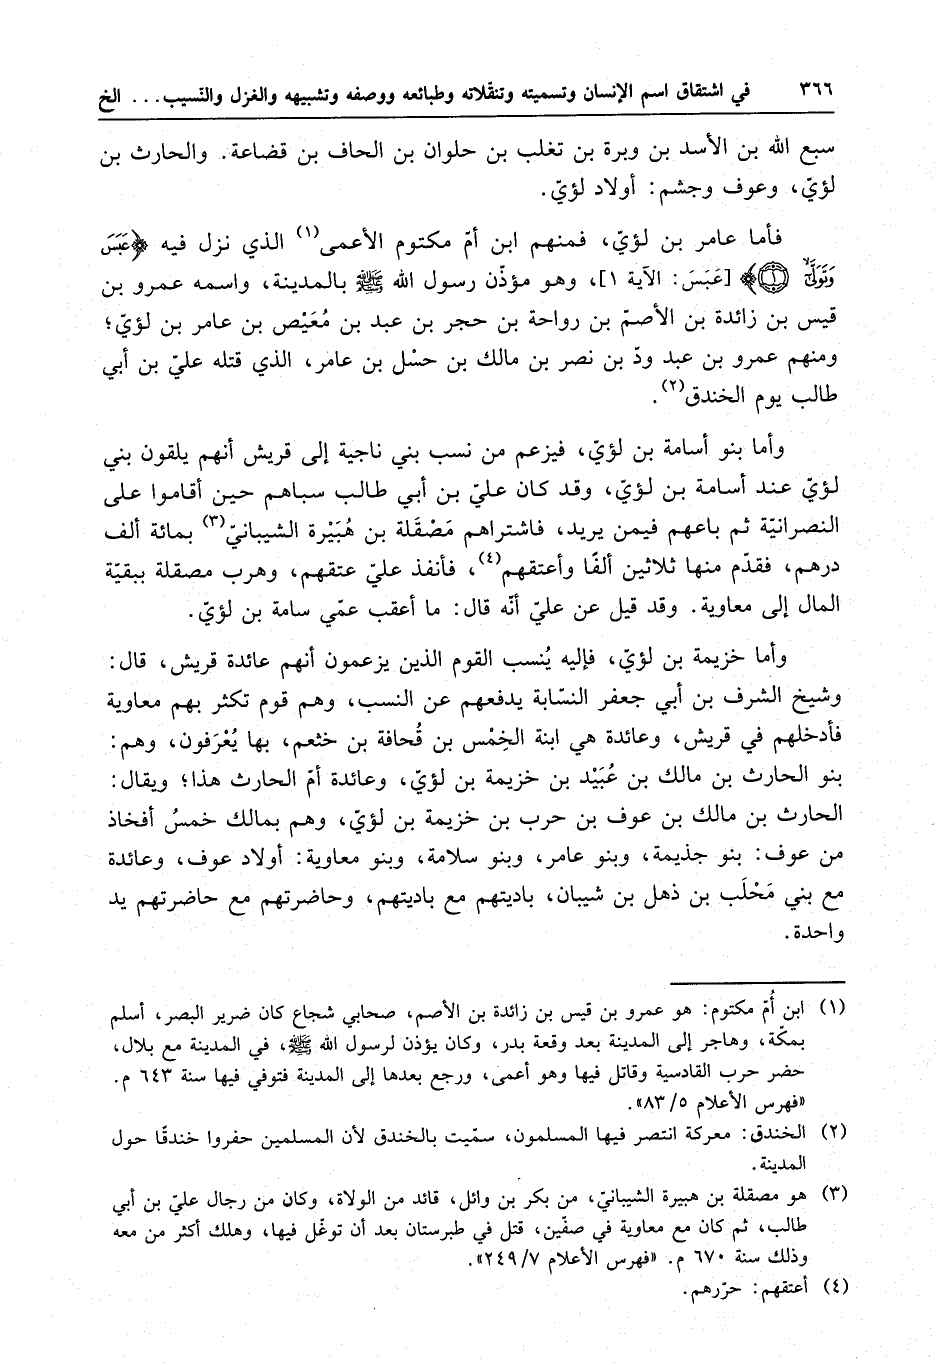 ٣٦٦ في اشتقاق اسم الإنسان وتسميته وتنقّلاته وطبائعه ووصفه وتشبيهه والغزل والنّسيب... الخ
سبع الله بن الأسد بن وبرة بن تغلب بن حلوان بن الحاف بن قضاعة. والحارث بن
لؤيّ، وعوف وجشم: أولاد لؤيّ.
فأما عامر بن لؤيّ، فمنهم ابن أمّ مكتوم الأعمى(١) الذي نزل فيه ﴿عَبَسَ
وَتَوَلَّىٰٓ ۝١﴾ [عَبَسَ: الآية ١]، وهو مؤذّن رسول الله ﷺ بالمدينة، واسمه عمرو بن
قيس بن زائدة بن الأصمّ بن رواحة بن حجر بن عبد بن مُعَيْص بن عامر بن لؤيّ؛
ومنهم عمرو بن عبد ودّ بن نصر بن مالك بن حسْل بن عامر، الذي قتله عليّ بن أبي
طالب يوم الخندق(٢).
وأما بنو أسامة بن لؤيّ، فيزعم من نسب بني ناجية إلى قريش أنهم يلقون بني
لؤيّ عند أسامة بن لؤيّ، وقد كان عليّ بن أبي طالب سباهم حين أقاموا على
النصرانيّة ثم باعهم فيمن يريد، فاشتراهم مَصْقَلة بن هُبَيْرة الشيبانيّ(٣) بمائة ألف
درهم، فقدّم منها ثلاثين ألفًا وأعتقهم(٤)، فأنفذ عليّ عتقهم، وهرب مصقلة ببقيّة
المال إلى معاوية. وقد قيل عن عليّ أنّه قال: ما أعقب عمّي سامة بن لؤيّ.
وأما خزيمة بن لؤيّ، فإليه يُنسب القوم الذين يزعمون أنهم عائدة قريش، قال:
وشيخ الشرف بن أبي جعفر النسّابة يدفعهم عن النسب، وهم قوم تكثر بهم معاوية
فأدخلهم في قريش، وعائدة هي ابنة الخِمْس بن قُحافة بن خثعم، بها يُعْرَفون، وهم:
بنو الحارث بن مالك بن عُبَيْد بن خزيمة بن لؤيّ، وعائدة أمّ الحارث هذا؛ ويقال:
الحارث بن مالك بن عوف بن حرب بن خزيمة بن لؤيّ، وهم بمالك خمسُ أفخاذ
من عوف: بنو جذيمة، وبنو عامر، وبنو سلامة، وبنو معاوية: أولاد عوف، وعائدة
مع بني مَحْلَب بن ذهل بن شيبان، باديتهم مع باديتهم، وحاضرتهم مع حاضرتهم يد
واحدة.
(١) ابن أُمّ مكتوم: هو عمرو بن قيس بن زائدة بن الأصم، صحابي شجاع كان ضرير البصر، أسلم
بمكّة، وهاجر إلى المدينة بعد وقعة بدر، وكان يؤذن لرسول الله ﷺ، في المدينة مع بلال،
حضر حرب القادسية وقاتل فيها وهو أعمى، ورجع بعدها إلى المدينة فتوفي فيها سنة ٦٤٣ م.
«فهرس الأعلام ٨٣/٥».
(٢) الخندق: معركة انتصر فيها المسلمون، سمّيت بالخندق لأن المسلمين حفروا خندقًا حول
المدينة.
(٣) هو مصقلة بن هبيرة الشيبانيّ، من بكر بن وائل، قائد من الولاة، وكان من رجال عليّ بن أبي
طالب، ثم كان مع معاوية في صفّين، قتل في طبرستان بعد أن توغّل فيها، وهلك أكثر من معه
وذلك سنة ٦٧٠ م. «فهرس الأعلام ٢٤٩/٧».
(٤) أعتقهم: حرّرهم.